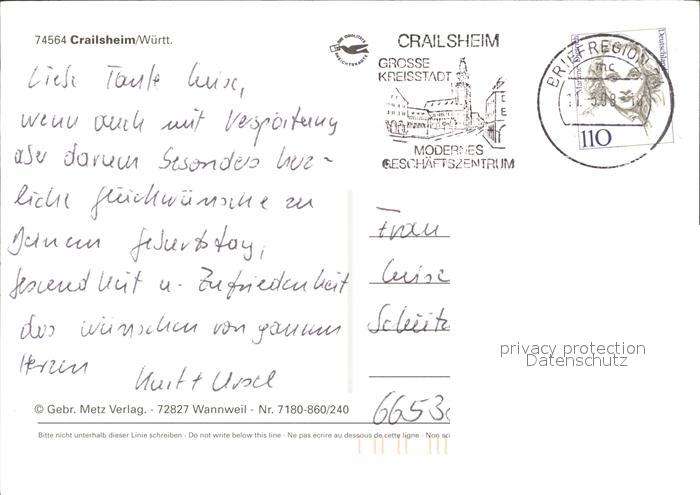 74564 Crailsheim/Württ.
Liebe Tante Luise,
wenn auch mit Verspätung
aber darum besonders herz-
liche Glückwünsche zu
Deinem Geburtstag,
Gesundheit u. Zufriedenheit
das wünschen von ganzem
Herzen
Kurt + Ursel
© Gebr. Metz Verlag. - 72827 Wannweil - Nr. 7180-860/240
Bitte nicht unterhalb dieser Linie schreiben - Do not write below this line - Ne pas écrire au dessous de cette ligne - Non sc
CRAILSHEIM
GROSSE
KREISSTADT
MODERNES
GESCHÄFTSZENTRUM
BRIEFREGION
mc
110
Frau
Luise
6653
privacy protection
Datenschutz